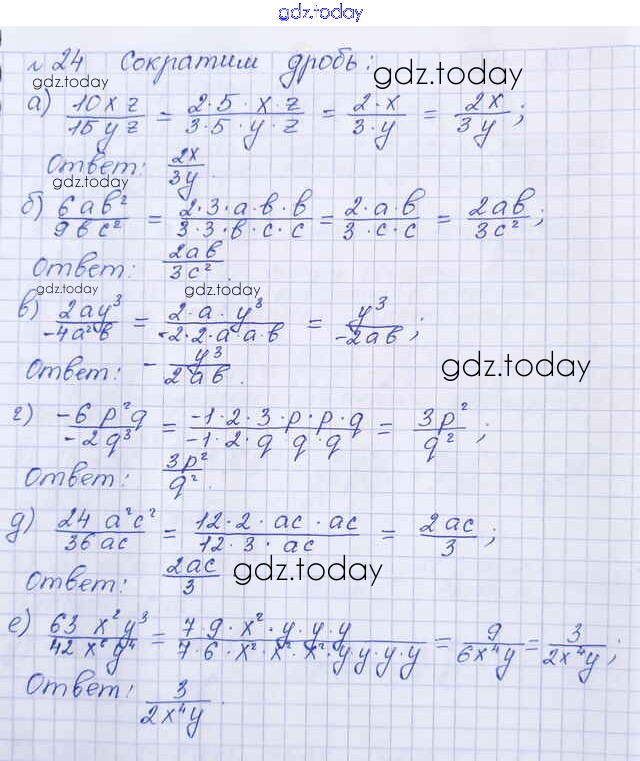 gdz.today
№ 24 Сократим дробь:
gdz.today gdz.today
а) 10xz/15yz = 2·5·x·z/3·5·y·z = 2·x/3·y = 2x/3y;
Ответ: 2x/3y.
gdz.today
б) 6ab²/9bc² = 2·3·a·b·b/3·3·b·c·c = 2·a·b/3·c·c = 2ab/3c²;
Ответ: 2ab/3c².
gdz.today gdz.today
в) 2ay³/-4a²b = 2·a·y³/-2·2·a·a·b = y³/-2ab;
Ответ: - y³/2ab.
gdz.today
г) -6p²q/-2q³ = -1·2·3·p·p·q/-1·2·q q·q = 3p²/q²;
Ответ: 3p²/q².
д) 24 a²c²/36ac = 12·2·ac·ac/12·3·ac = 2ac/3;
Ответ: 2ac/3
gdz.today
е) 63 x²y³/42x⁶y⁴ = 7·9·x²·y·y·y/7·6·x²·x²·x²·y·y·y·y = 9/6x⁴y = 3/2x⁴y;
Ответ: 3/2x⁴y.